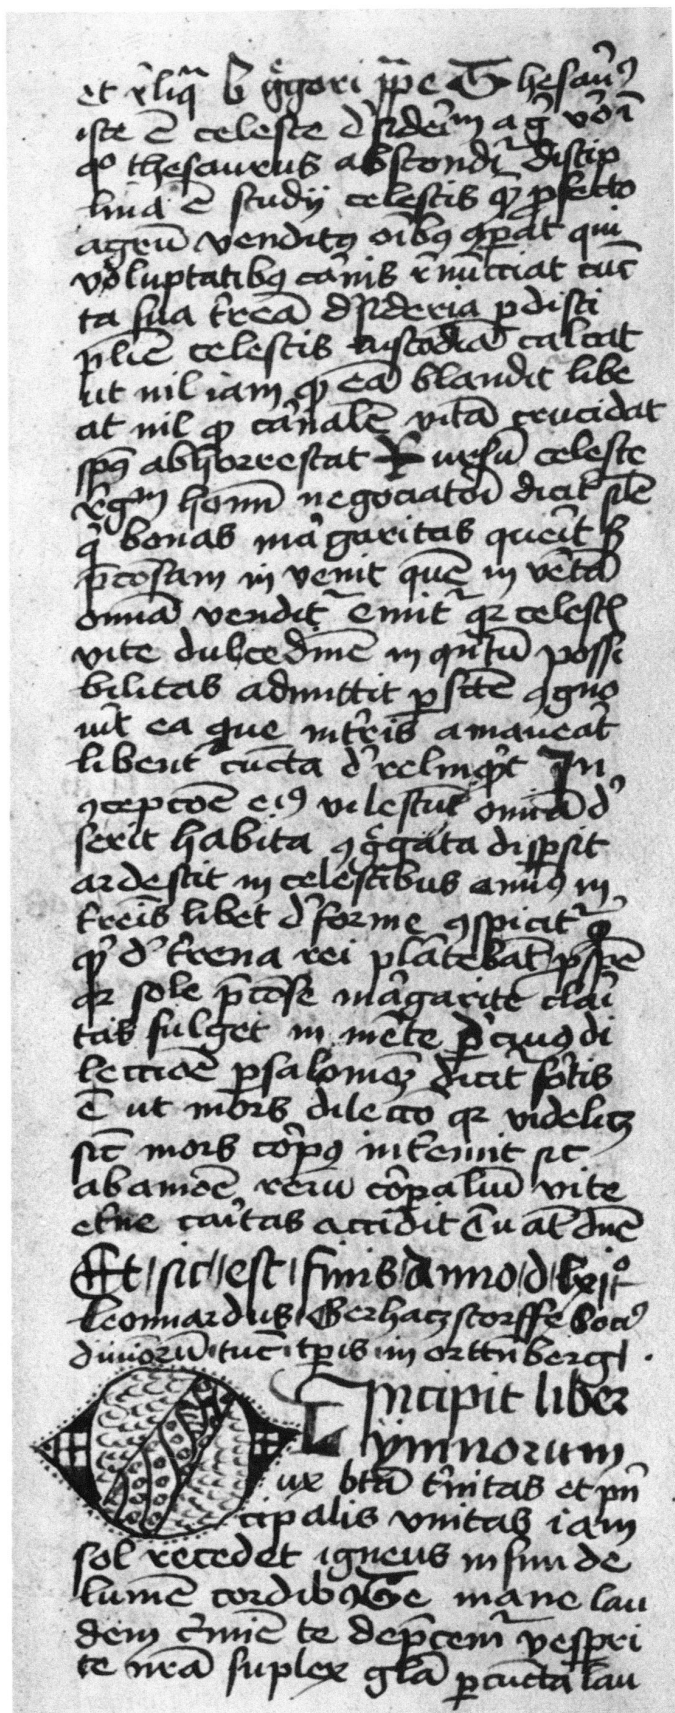 et r̄liq̄ b̄ gͤgori pp̄e Thesaur9
iste ē celeste d'sideriū aḡ v̄o ī
qͦ thesaurus abscondit̄ discip
lina ē studij celestis q̄ p̄fecto
agrū venditꝯ oībꝯ ꝯpat qui
voluptatibꝯ carnis r̄nūcciat cūc
ta sua t̄rena d'sideria p disci
plīē celestis custodiā calcat
ut nil iam q̄ carnē blandit̄ libe
at nil q̄ carnalē vitā trucidat
sp̄ꝯ abhorrescat Rursū celeste
r̄gm homī negociatori dicit̄ sīle
q̄ bonas m̄garitas querit s̄
p̄cosam in venit quē in v̄tā
omīa vendit̄ emit̄ qꝛ celest̄
vite dulcedinē in quātū possi
bilitas admittit p̄fectē ꝯgno
v̄it ea que in t̄ris amaverat
libent̄ cūcta d'relinq̄t In
ꝯꝑacōē eiꝯ vilescūt omīa d'
serit habita ꝯgͤgata disp̄sit
ardescit in celestibus animꝯ in
t̄renis libet d'forme ꝯspicit̄ q̄
q̄ d' t̄rena rei placebat sp̄e
qꝛ sole p̄cose m̄garite clari
tas fulget in mēte D' cuiꝯ di
lecciōē p salomonē dicit̄ fortis
ē ut mors dileccō qꝛ videlicꝫ
sic̄ mors corpꝯ int̄emit sic
ab amōē rerū corꝑaliū vite
et̄ne caritas occidit Tu aūt dn̄e
Et / sic / est / finis / Anno / d / lxijͦ
Leonnardus Gerhatzstorffe soci'
divinorū tūc tꝑis in orttn̄bergk .
Incipit liber
ymnorum
Lux bt̄ā t̄nitas et pn̄
cipalis vnitas iam
sol recedet igneus infunde
lumē cordibꝯ Te mane lau
dem c̄minē te dep̄cem̄ vespri
te nr̄ā suplex gl̄ā p cūcta lau